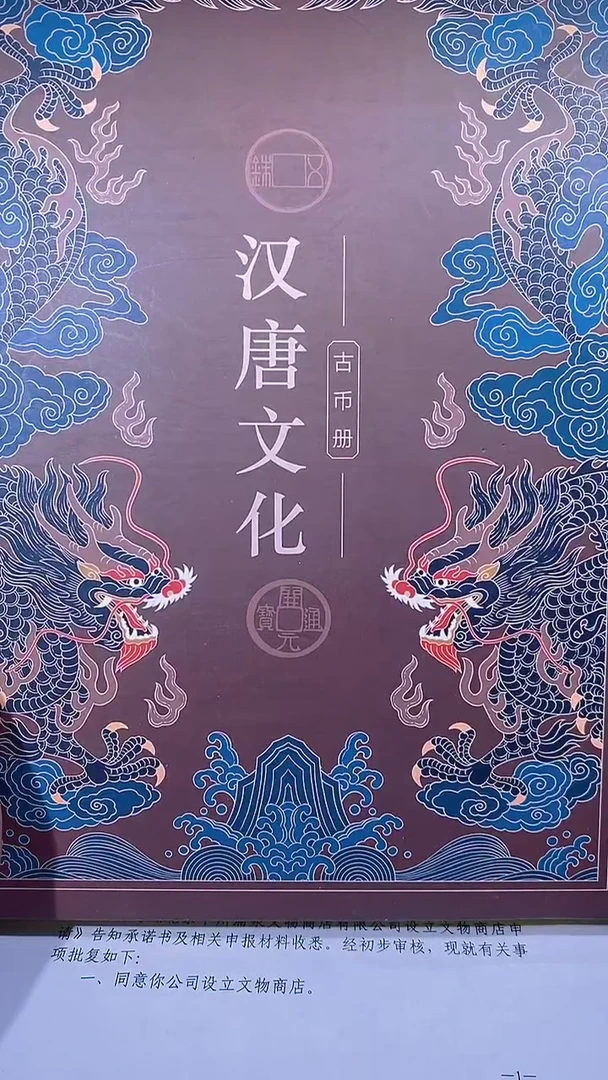 五銖
汉唐文化
古币册
開元通寶
有限公司设立文物商店申
请》告知承诺书及相关申报材料收悉。经初步审核，现就有关事
项批复如下：
一、同意你公司设立文物商店。
—1—